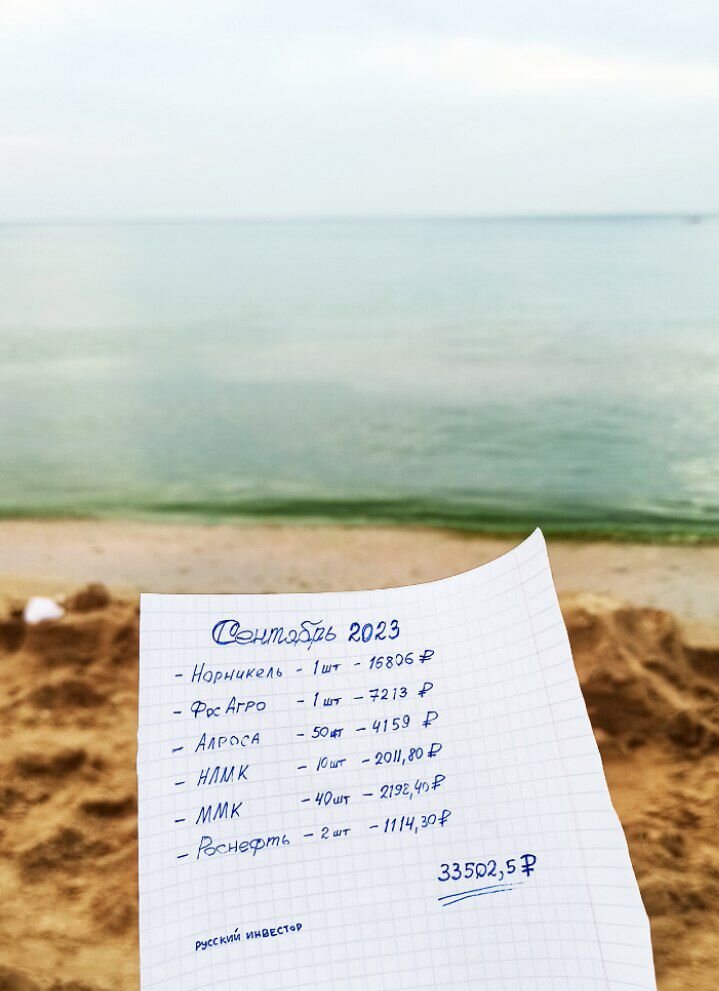 Сентябрь 2023
- Норникель - 1 шт - 16806 ₽
- ФосАгро - 1 шт - 7213 ₽
- Алроса - 50 шт - 4159 ₽
- НЛМК - 10 шт - 2011,80 ₽
- ММК - 40 шт - 2198,40 ₽
- Роснефть - 2 шт - 1114,30 ₽
33502,5 ₽
русский инвестор